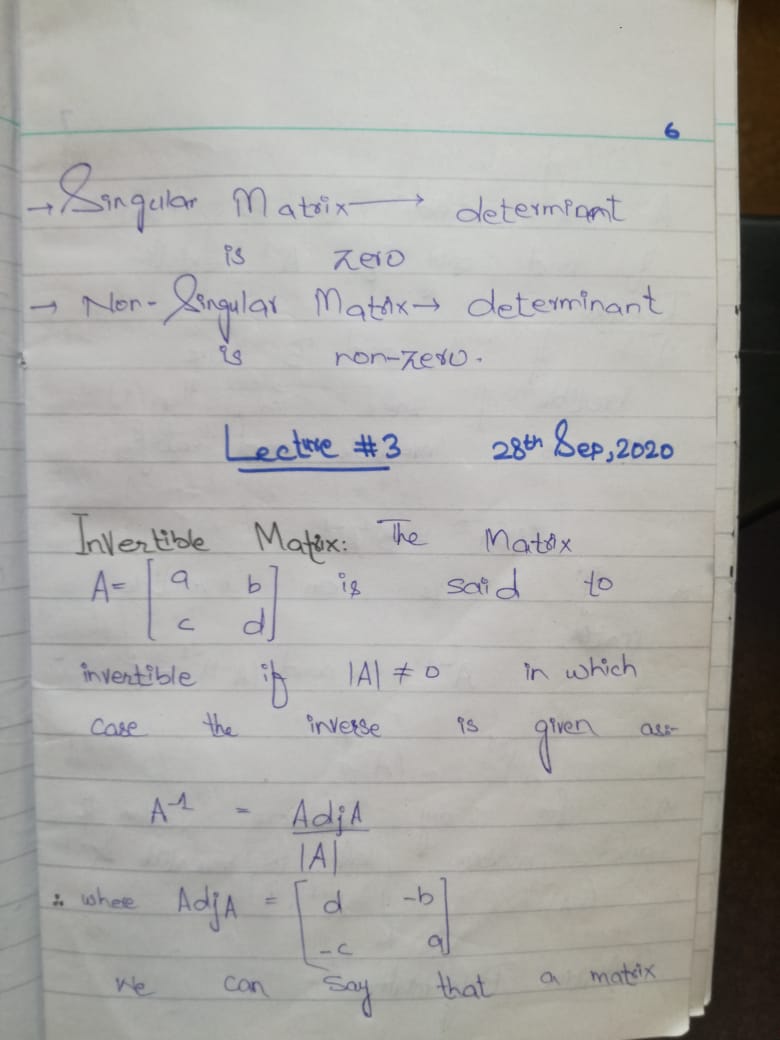 6
→ Singular Matrix → determinant
is zero
→ Non-Singular Matrix → determinant
is non-zero.
Lecture #3 28th Sep, 2020
Invertible Matrix: The Matrix
A= [ a b
c d ] is said to
invertible if |A| ≠ 0 in which
case the inverse is given as:-
A⁻¹ = AdjA
|A|
∴ where AdjA = [ d -b
-c a ]
We can say that a matrix